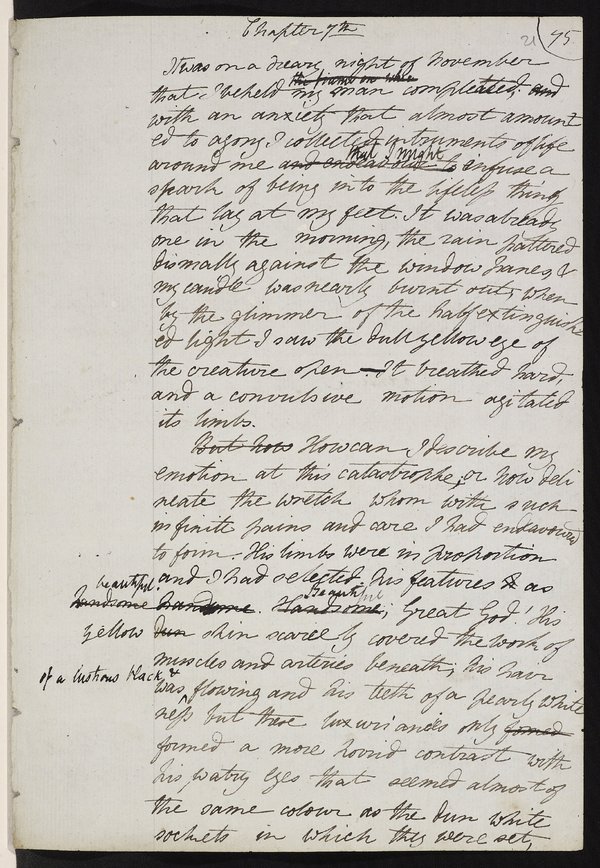 Chapter 7th
21 75
It was on a dreary night of November
the frame on whic
that I beheld my man compleated, and
with an anxiety that almost amount
ed to agony I collected instruments of life
that I might
around me and endeavour to infuse a
spark of being into the lifeless thing
that lay at my feet. It was already
one in the morning, the rain pattered
dismally against the window panes, &
my candle was nearly burnt out, when
by the glimmer of the half extinguish
ed light I saw the dull yellow eye of
the creature open — It breathed hard,
and a convulsive motion agitated
its limbs.
But how How can I describe my
emotion at this catastrophe, or how deli
neate the wretch whom with such
infinite pains and care I had endeavoured
to form. His limbs were in proportion
and I had selected his features & as
beautiful Beautiful
handsome handsome. Handsome; Great God! His
yellow dun skin scarcely covered the work of
muscles and arteries beneath; his hair
of a lustrous black, &
was flowing and his teeth of a pearly white
ness but these luxuriances only fomed
formed a more horrid contrast with
his watry eyes that seemed almost of
the same colour as the dun white
sockets in which they were set,